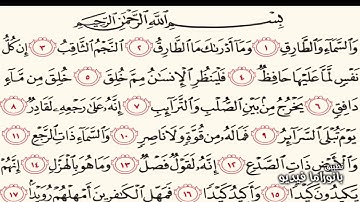 بِسْمِ اللَّهِ الرَّحْمَٰنِ الرَّحِيمِ
وَالسَّمَاءِ وَالطَّارِقِ ١ وَمَا أَدْرَاكَ مَا الطَّارِقُ ٢ النَّجْمُ الثَّاقِبُ ٣ إِن كُلُّ
نَفْسٍ لَّمَّا عَلَيْهَا حَافِظٌ ٤ فَلْيَنظُرِ الْإِنسَانُ مِمَّ خُلِقَ ٥ خُلِقَ مِن مَّاءٍ
دَافِقٍ ٦ يَخْرُجُ مِن بَيْنِ الصُّلْبِ وَالتَّرَائِبِ ٧ إِنَّهُ عَلَىٰ رَجْعِهِ لَقَادِرٌ ٨
يَوْمَ تُبْلَى السَّرَائِرُ ٩ فَمَا لَهُ مِن قُوَّةٍ وَلَا نَاصِرٍ ١٠ وَالسَّمَاءِ ذَاتِ الرَّجْعِ ١١
وَالْأَرْضِ ذَاتِ الصَّدْعِ ١٢ إِنَّهُ لَقَوْلٌ فَصْلٌ ١٣ وَمَا هُوَ بِالْهَزْلِ ١٤ إِنَّهُمْ
يَكِيدُونَ كَيْدًا ١٥ وَأَكِيدُ كَيْدًا ١٦ فَمَهِّلِ الْكَافِرِينَ أَمْهِلْهُمْ رُوَيْدًا ١٧
بانوراما فيديو